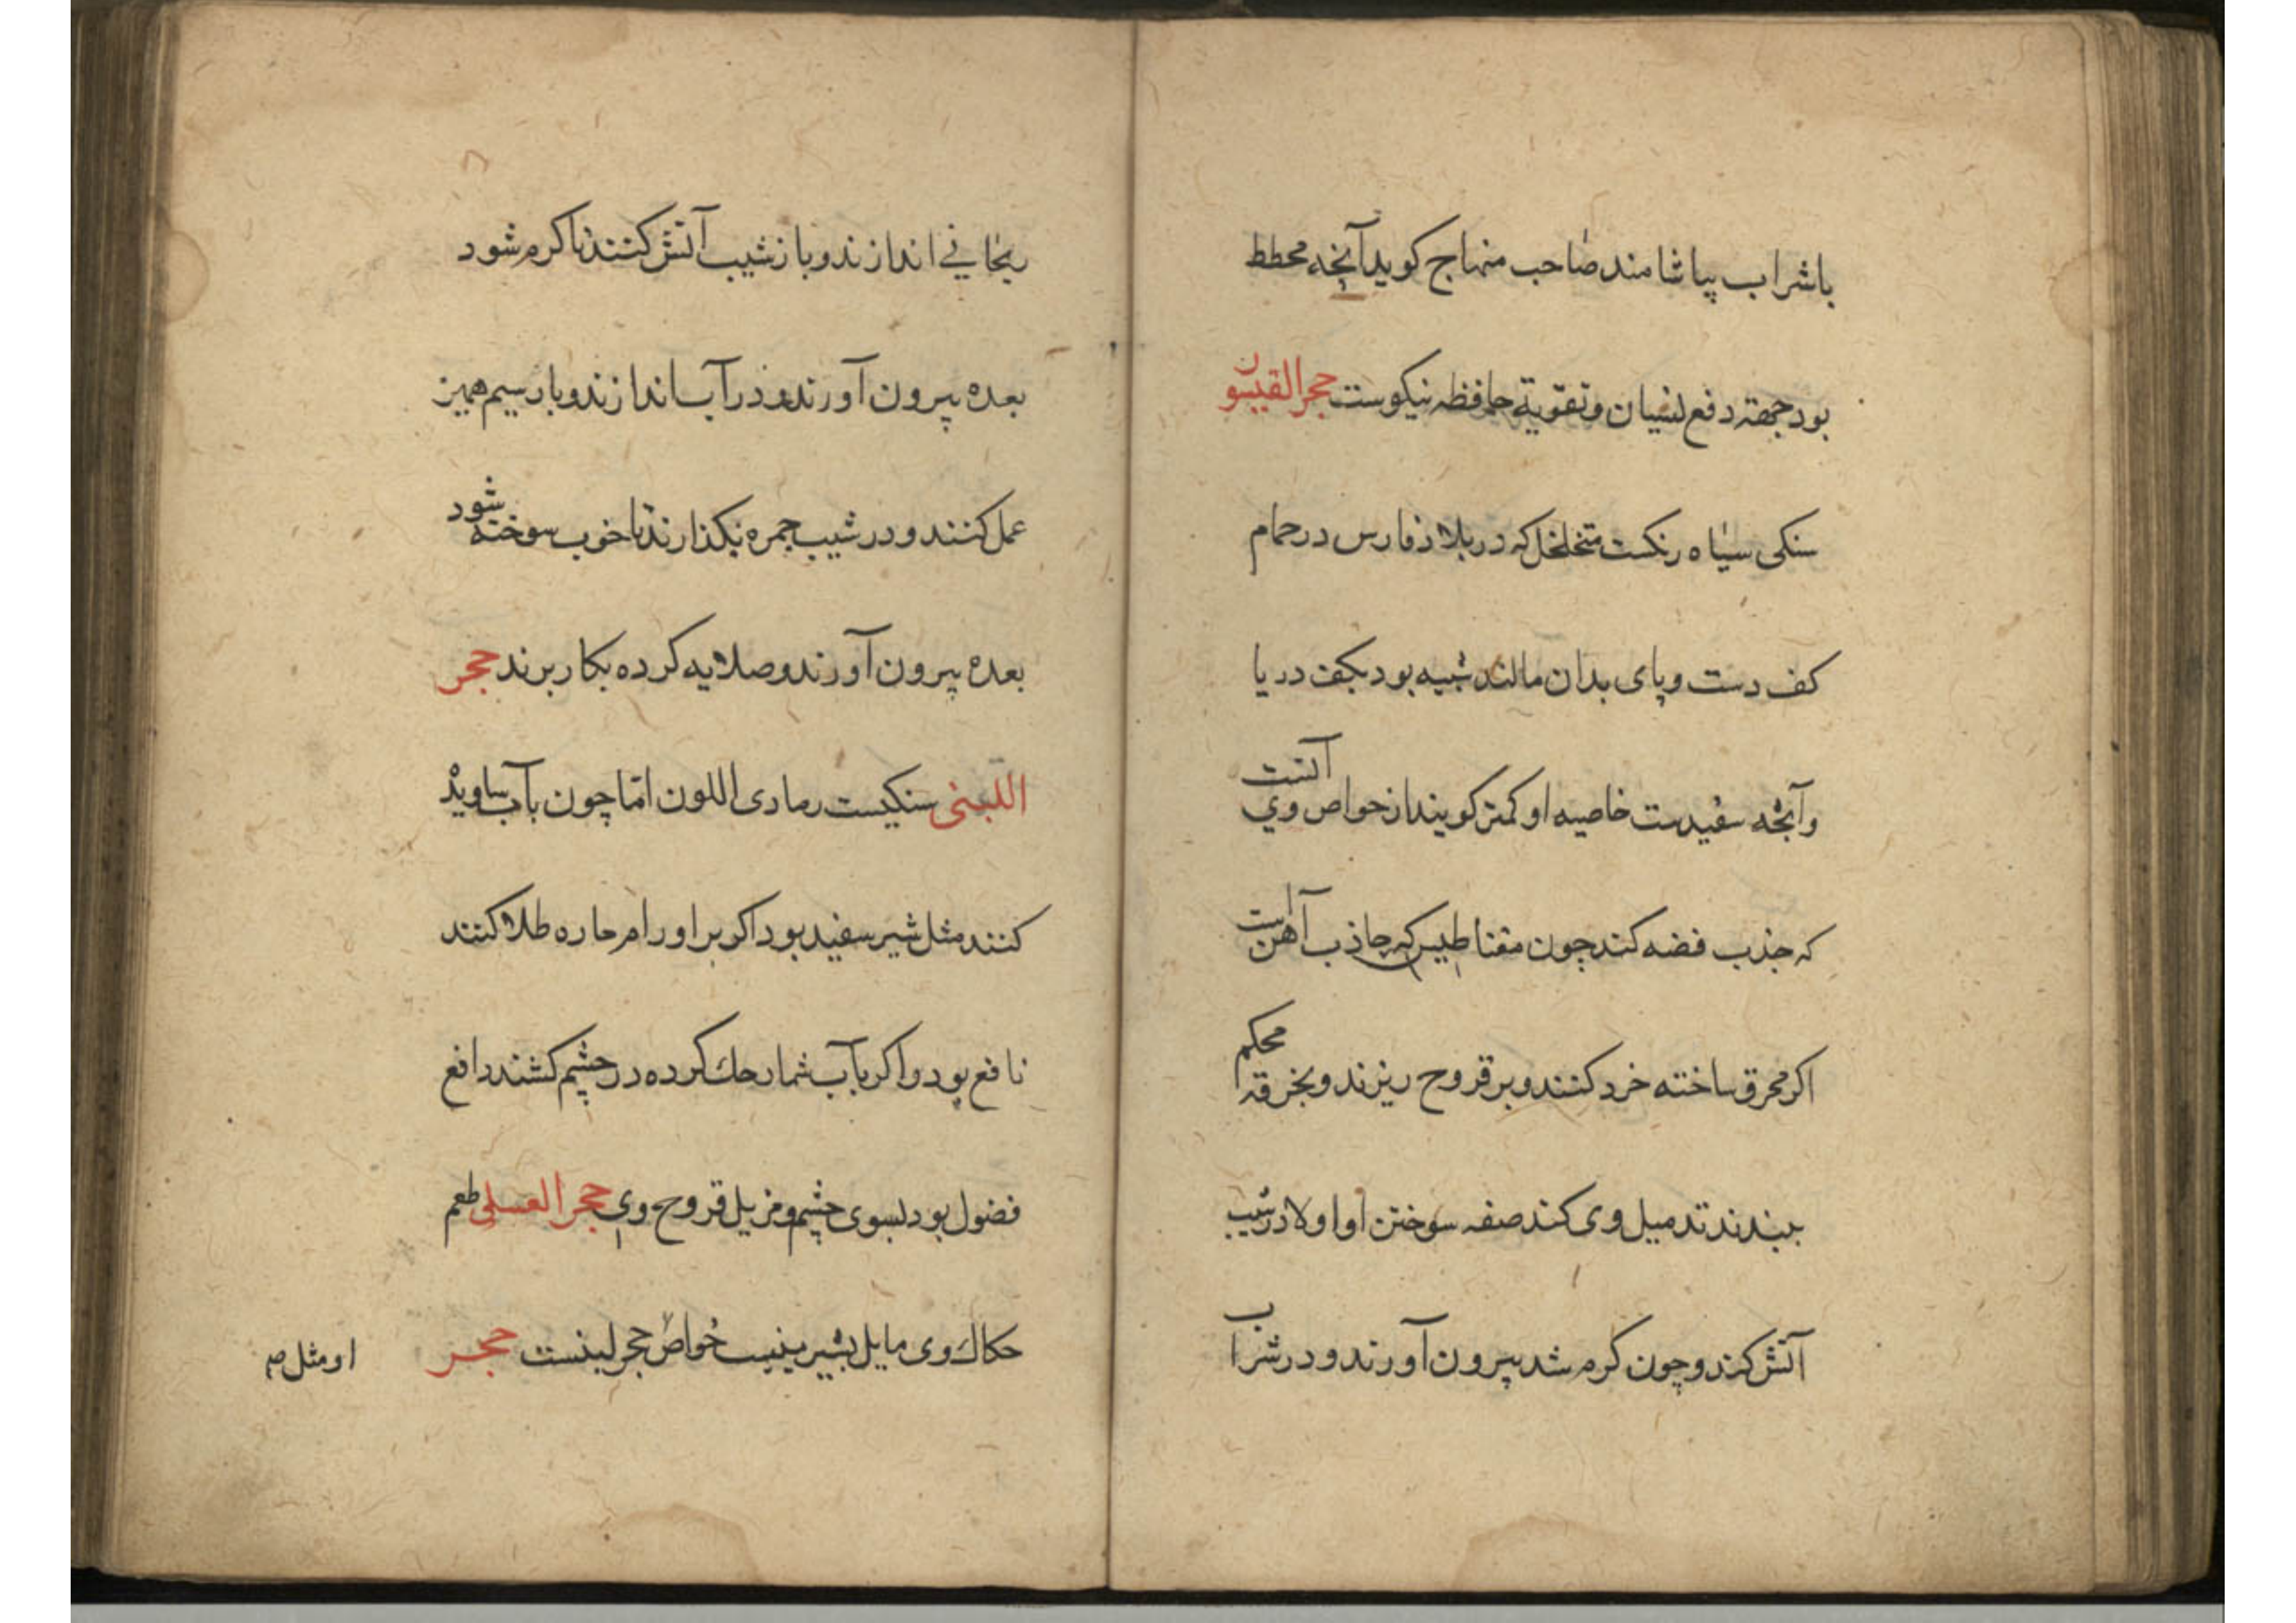 باشراب بیاشامند صاحب منهاج کوید آنچه مخطط
بود جهته دفع نسیان و تقویة حافظه نیکوست حجر القیشو
سنکی سیاه رنکست متخلخل که در بلاد فارس در حمام
کف دست و پای بدان مالند شبیه بود بکف دریا
وآنچه سفیدست خاصیه او کمتر کویند از خواص وی آنست
که جذب فضه کند چون مقناطیس که جاذب آهن است
اکر محرق ساخته خرد کنند و بر قروح ریزند و بخرقه محکم
ببندند تدمیل وی کند صفه سوختن او اولا در شیب
آتش کند و چون کرم شد بیرون آورند و در شراب
ریحانی اندازند و باز شیب آتش کنند تا کرم شود
بعده بیرون آورند و در آب اندازند و بار سیم همین
عمل کنند و در شیب جمره بکذارند تا خوب سوخته شود
بعده بیرون آورند و صلایه کرده بکار برند حجر
اللبنی سنکیست رمادی اللون اما چون بآب
کنند مثل شیر سفید بود اکر بر اورام حاره طلا کنند
نافع بود و اکر بآب شمار حك کرده در چشم کشند دافع
فضول بود بسوی چشم و مزیل قروح وی حجر العسلی طعم
حکاك وی مایل بشیرینیست خواص حجر لبنست حجر
او مثل